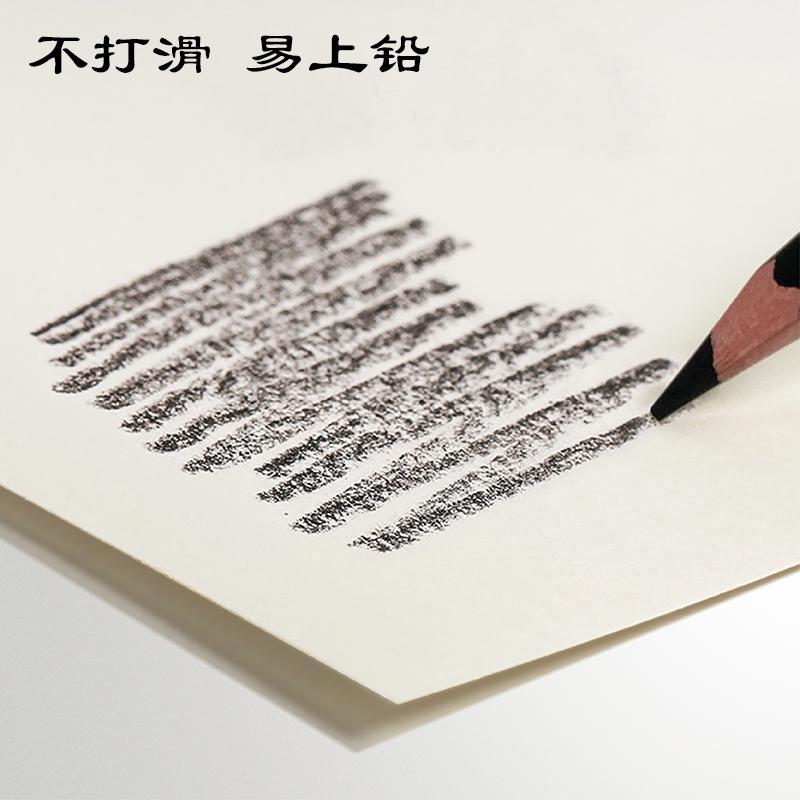 不打滑 易上铅